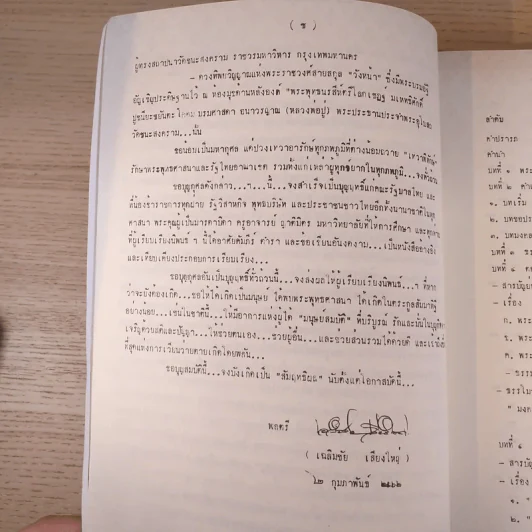 ( ช )
ผู้ทรงสถาปนาวัดชนะสงคราม ราชวรมหาวิหาร กรุงเทพมหานคร
– ดวงทิพยวิญญาณแห่งพระราชวงศ์สายสกุล "วังหน้า" ซึ่งมีพระบรมอัฐิ
วัดชนะสงคราม...นั้น
ขอน้อมเป็นมหากุศล แด่ปวงเทวาอารักษ์ทุกภพภูมิที่ต่างน้อมถวาย "เทวาพิทักษ์
รักษาพระพุทธศาสนาและรัฐไทยอาณาเขต รวมทั้งแด่เหล่าผู้ทุกข์ยากในทุกภพภูมิ...
ขอบุญกุศลดังกล่าว...ฯ...นี้...จงสำเร็จเป็นบุญฤทธิ์แก่คณะรัฐบาลไทย และ
พี่น้องข้าราชการทุกฝ่าย รัฐวิสาหกิจ พุทธบริษัท และประชาชนชาวไทย
ศาสนา พระคุณผู้เป็นมารดาบิดา ครูอาจารย์ ญาติมิตร มหาวิทยาลัยที่ให้การศึกษา และ
ที่ผู้เรียบเรียงนิพนธ์ ฯ นี้ได้อาศัยคัมภีร์ ตำรา และข้อเขียนอันงดงาม...เป็นหนังสืออ้างอิง
และเทียบเคียงประกอบการเรียบเรียง...
ขอบุญกุศลอันเป็นบุญฤทธิ์ทั่วถ้วนนี้...จงส่งผลให้ผู้เรียบเรียงนิพนธ์...ฯ ที่หาก
ว่าจะยังต้องเกิด...ขอให้ได้เกิดเป็นมนุษย์ ได้พบพระพุทธศาสนา ได้เกิดในตระกูลสัมมาทิฐิ
อย่างน้อย...เช่นในชาตินี้...ให้มีอาการแห่งผู้ได้ "มนุษย์สมบัติ" ที่บริบูรณ์
เจริญด้วยสติและปัญญา...ให้ช่วยตนเอง...ช่วยผู้อื่น...และช่วยส่วนรวมได้ด้วยดี
ที่สุดแห่งการเวียนว่ายตายเกิดโดยพลัน...
ขอบุญสมบัตินี้...จงบังเกิดเป็น "สัมฤทธิผล" นับตั้งแต่โอกาสบัดนี้...
พลตรี
( เฉลิมชัย เสียงใหญ่ )
๒ กุมภาพันธ์ ๒๕๖๖
คำปรารภ
คำนำ
บทที่ ๑
บทที่ ๒
๑. บทเริ่ม
๒. บทขอ
๓. บทมงคล
บทที่ ๓
บทที่ ๔
– สารบัญ
– เรื่อง
ก. พระ
ข. พระ
ค. พระ
บทที่ ๕
– สารบัญ
– เรื่อง
๑. "
๒. "